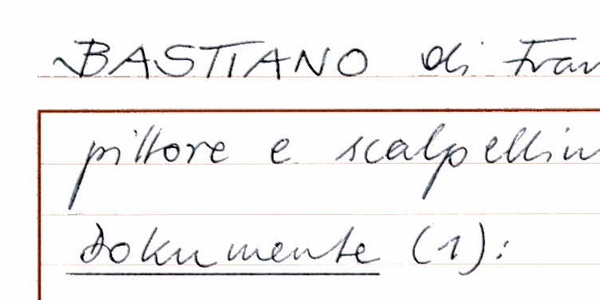 BASTIANO di Fran
pittore e scalpellin
Dokumente (1):